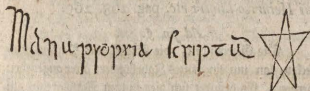 Manu propria scriptū